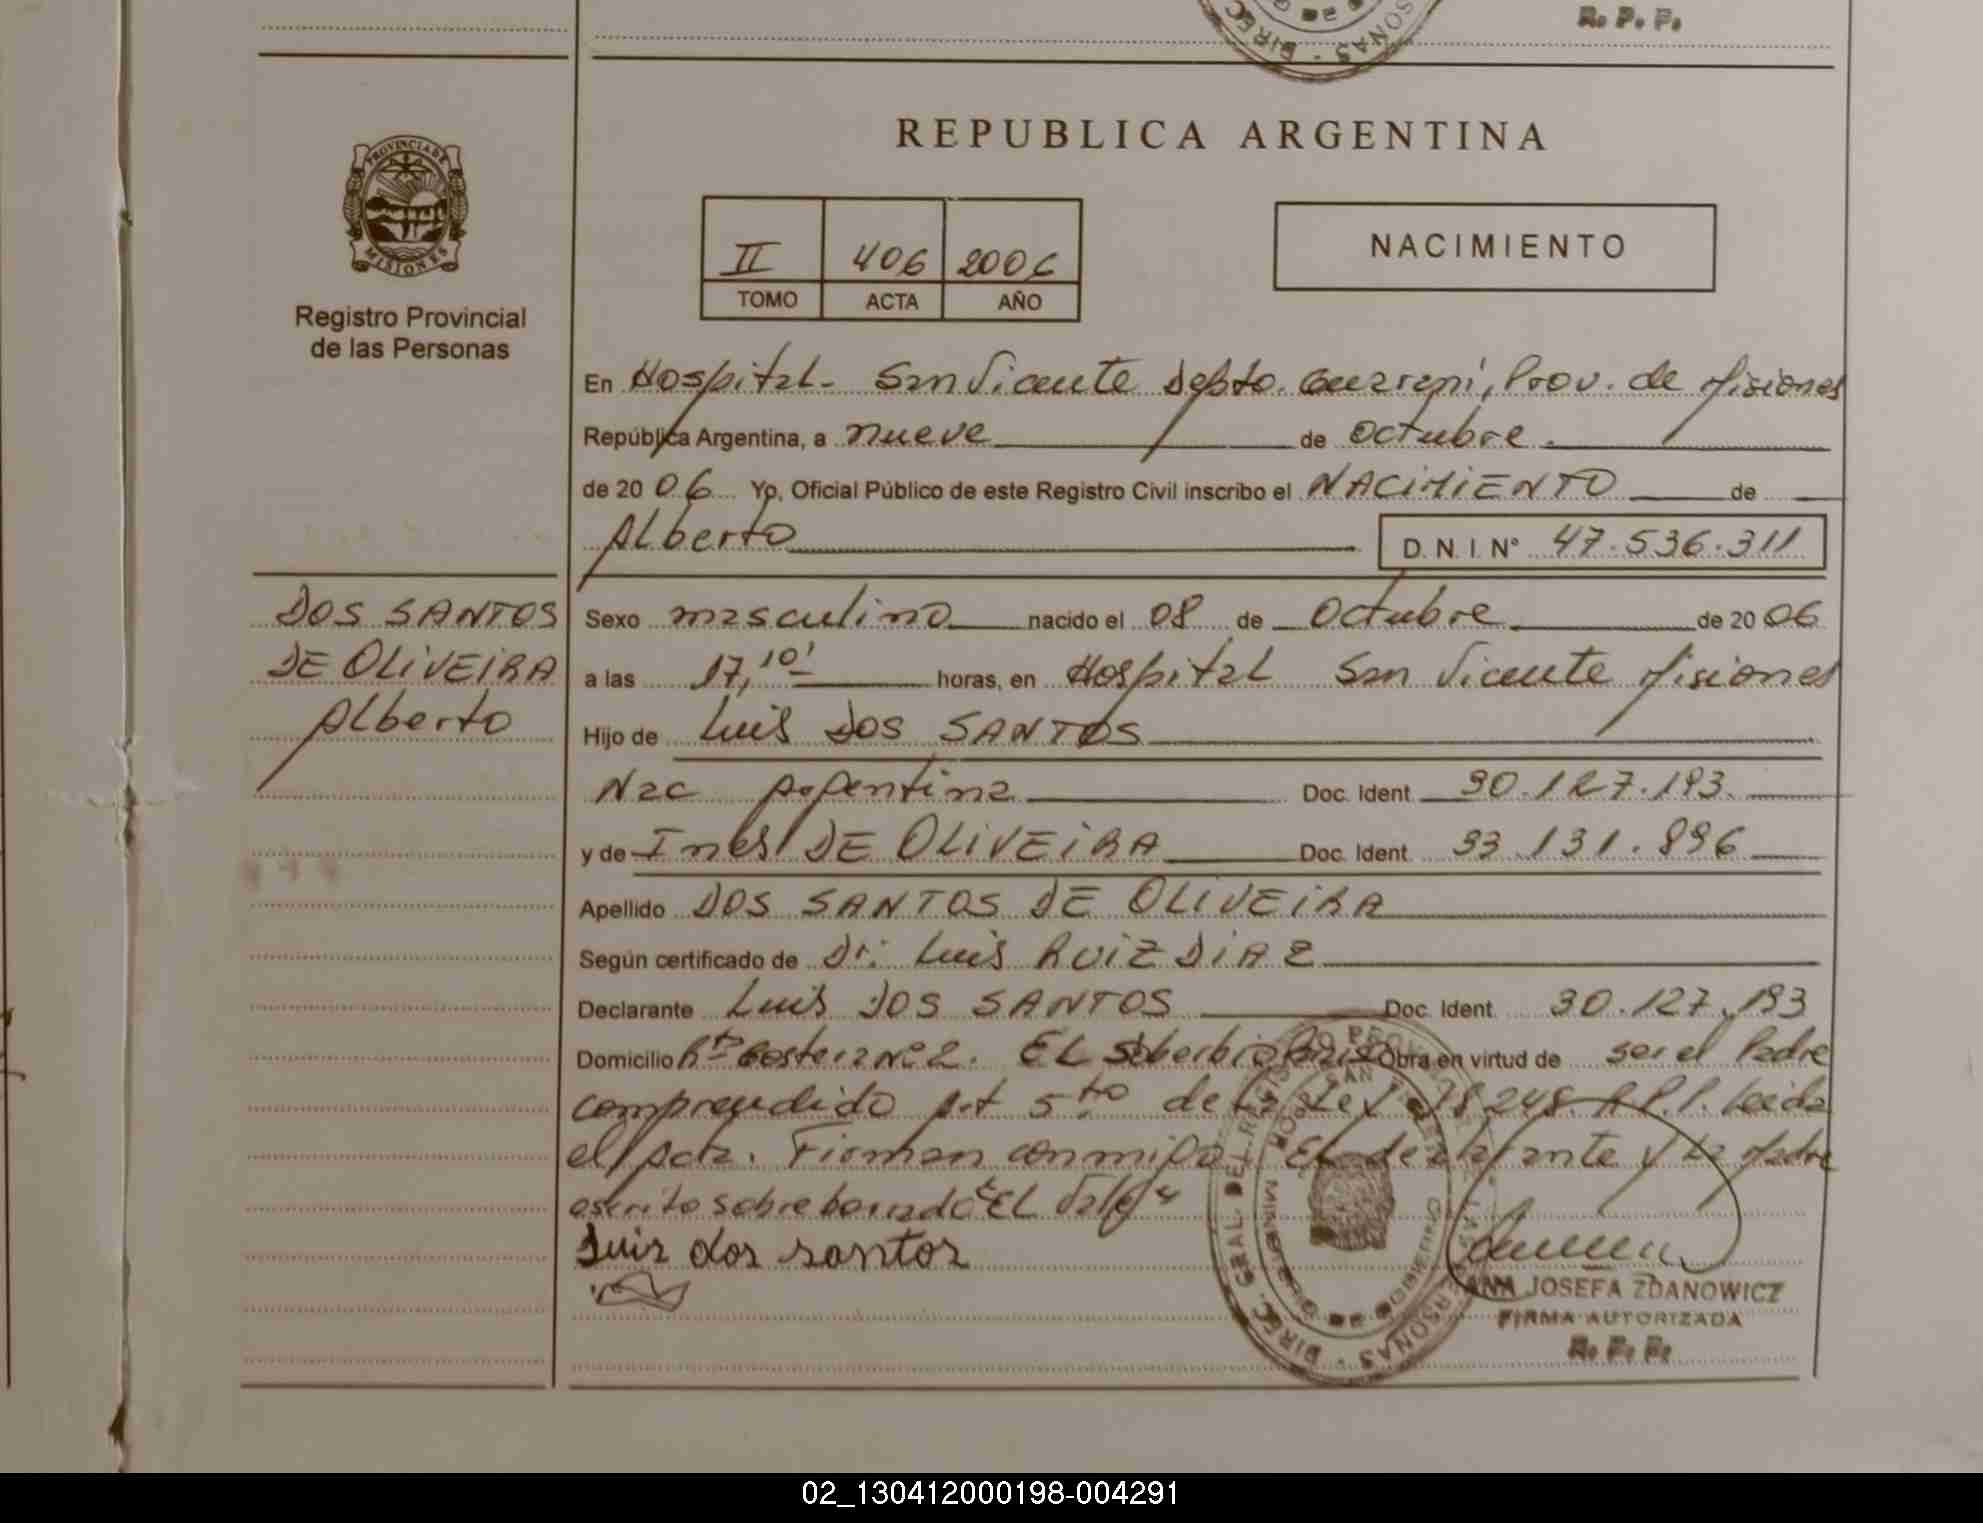 R. P. P.
DIREC
SONAS
REPUBLICA ARGENTINA
PROVINCIA DE
MISIONES
Registro Provincial
de las Personas
II 406 2006
TOMO ACTA AÑO
NACIMIENTO
En Hospital- San Vicente Depto. Guarani, Prov. de Misiones
República Argentina, a nueve de octubre
de 2006 Yo, Oficial Público de este Registro Civil inscribo el NACIMIENTO de
Alberto D.N.I. N° 47.536.311
DOS SANTOS
DE OLIVEIRA
Alberto
Sexo masculino nacido el 08 de Octubre de 2006
a las 17,10' horas, en Hospital San Vicente Misiones
Hijo de Luis DOS SANTOS
Nac Argentina Doc. Ident 30.127.193.
y de Ines DE OLIVEIRA Doc. Ident 33.131.896
Apellido DOS SANTOS DE OLIVEIRA
Según certificado de Dr: Luis RUIZ DIAZ
Declarante Luis DOS SANTOS Doc. Ident 30.127.193
Domicilio Rta Costera Nº 2. EL Soberbio Obra en virtud de ser el Padre
comprendido Art 5to de la Ley 18248. R.P.P. Leida
el Acta. Firman conmigo El declarante y la Madre
escrito sobre borrado "EL Vale"
Luis dos santos
ANA JOSEFA ZDANOWICZ
FIRMA AUTORIZADA
R. P. P.
02_130412000198-004291